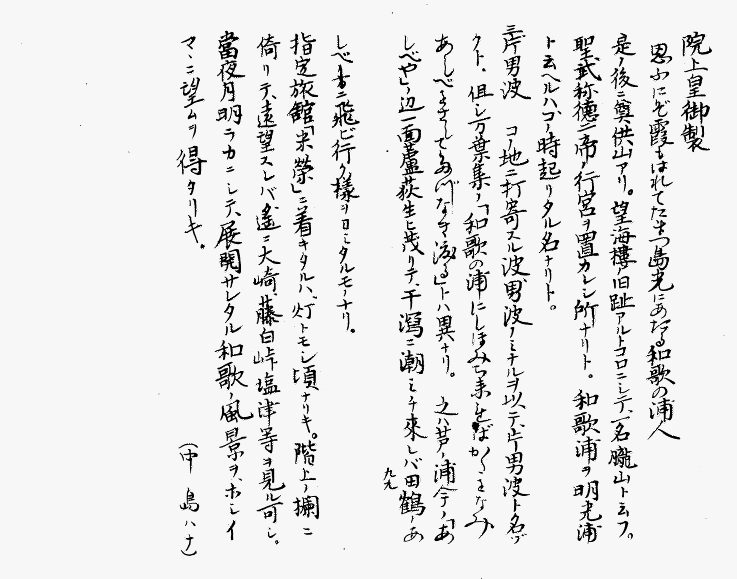 院上皇御製
思ふにぞ霞もはれてたまつ島光にあたる和歌の浦人
是ノ後ニ奠供山アリ。望海樓ノ旧趾アルトコロニシテ、一名朧山ト云フ。
聖武称徳二帝ノ行宮ヲ置カレシ所ナリト。和歌浦ヲ明光浦
ト云ヘルハコノ時起リタル名ナリト。
三、片男波 コノ地ニ打寄スル波、男波ノミナルヲ以テ、片男波ト名ヅ
クト、但シ万葉集ノ「和歌の浦にしほみち来ればかたをなみ
あしべをさしてたづなき渡る」トハ異ナリ。之ハ芦ノ浦今ノ「あ
しべや」ノ辺一面蘆荻生ヒ茂リテ、干潟ニ潮ミチ來レバ田鶴ノあ
しべ方ニ飛ビ行ク様ヲヨミタルモノナリ。
指定旅館「米榮」ニ着キタルハ、灯トモシ頃ナリキ。階上ノ欄ニ
倚リテ、遠望スレバ遙ニ大崎、藤白峠、塩津等ヲ見ル可シ。
當夜月明ラカニシテ、展開サレタル和歌ノ風景ヲ、ホシイ
マヽニ望ムヲ得タリキ。
(中島ハナ)
九九